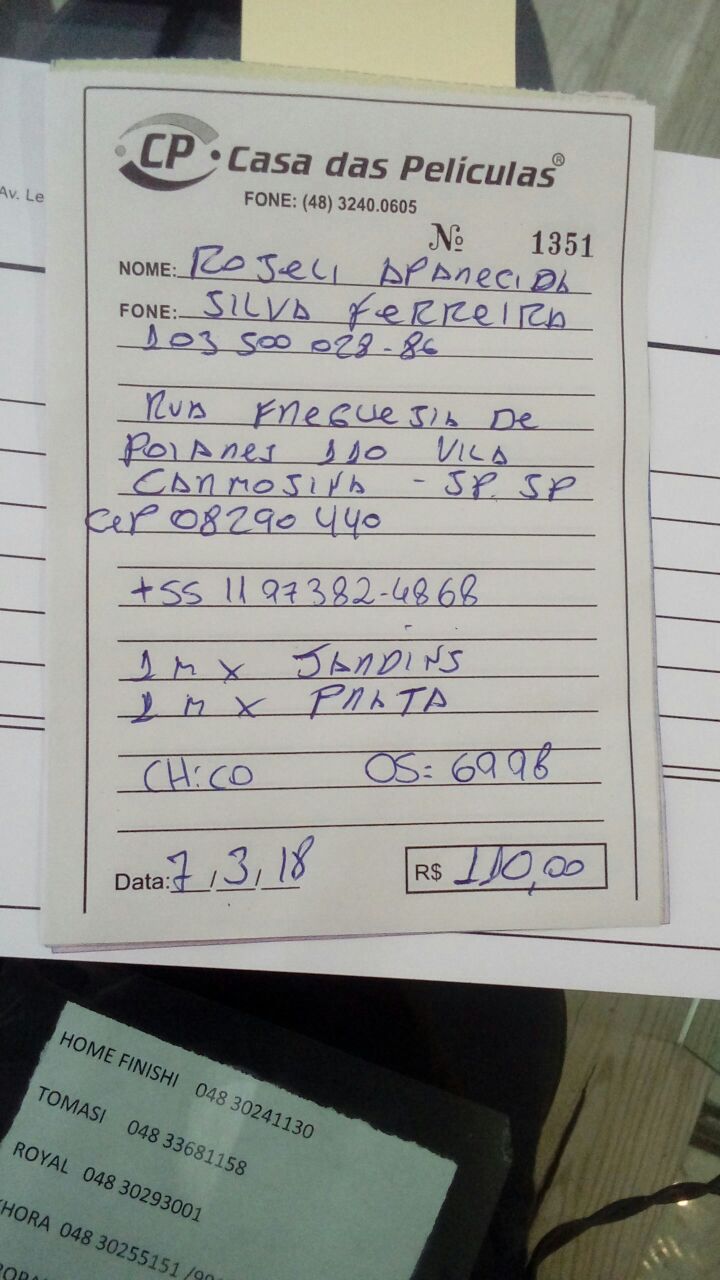 Av. Le
CP Casa das Películas®
FONE: (48) 3240.0605
Nº 1351
NOME: ROSELI APARECIDA
FONE: SILVA FERREIRA
103 500 028-86
RUA FREGUESIA DE
POIARES 110 VILA
CARMOSINA - SP. SP
CEP 08290 440
+55 11 97382-4868
1 M X JARDINS
1 M X PRATA
CHICO OS: 6998
Data: 7/3/18 R$ 110,00
HOME FINISHI 048 30241130
TOMASI 048 33681158
ROYAL 048 30293001
HORA 048 30255151